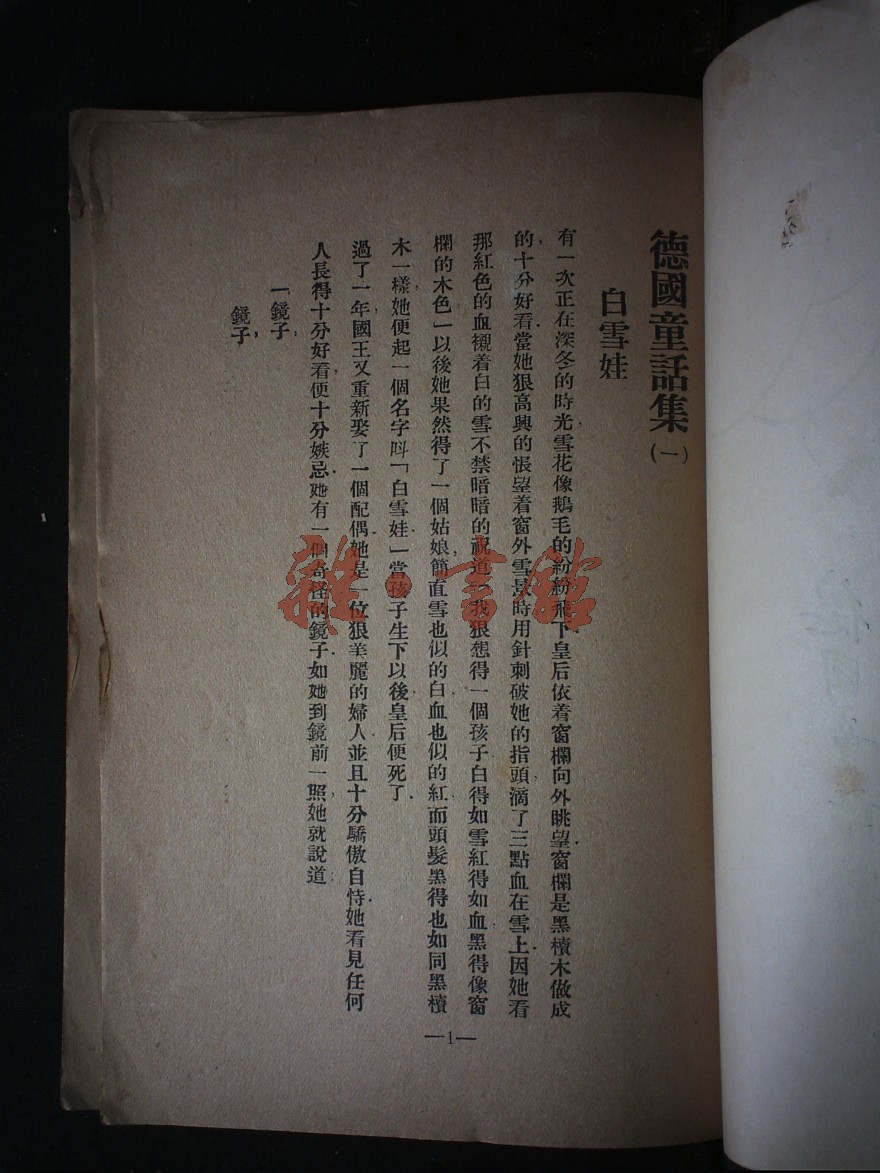 德國童話集(一)
白雪娃
有一次正在深冬的時光雪花像鵝毛的紛紛飛下皇后依着窗欄向外眺望窗欄是黑檀木做成
的十分好看當她狠高興的悵望着窗外雪景時用針刺破她的指頭滴了三點血在雪上因她看
那紅色的血襯着白的雪不禁暗暗的祝道「我狠想得一個孩子白得如雪紅得如血黑得像窗
欄的木色」以後她果然得了一個姑娘簡直雪也似的白血也似的紅而頭髮黑得也如同黑檀
木一樣她便起一個名字呌「白雪娃」當孩子生下以後皇后便死了
過了一年國王又重新娶了一個配偶她是一位狠美麗的婦人並且十分驕傲自恃她看見任何
人長得十分好看便十分嫉忌她有一個奇怪的鏡子如她到鏡前一照她就說道
「鏡子,
鏡子,
—1—
雜·書館